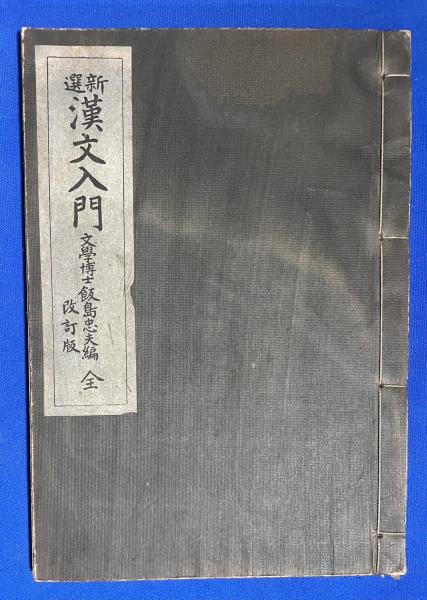 新選漢文入門
文學博士飯島忠夫編 全
改訂版